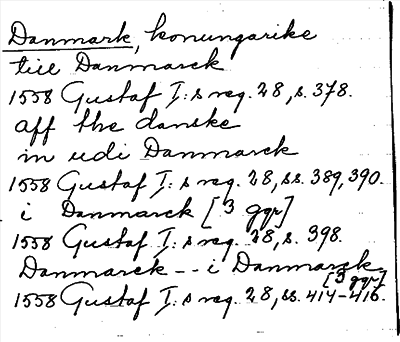 Danmark, konungarike
till Danmarck
1558 Gustaf I:s reg. 28, s. 378.
aff the danske
in udi Danmarck
1558 Gustaf I:s reg. 28, ss. 389, 390.
i Danmarck [3 ggr]
1558 Gustaf I:s reg. 28, s. 398.
Danmarck -- i Danmarck
[3 ggr]
1558 Gustaf I:s reg. 28, ss. 414-416.